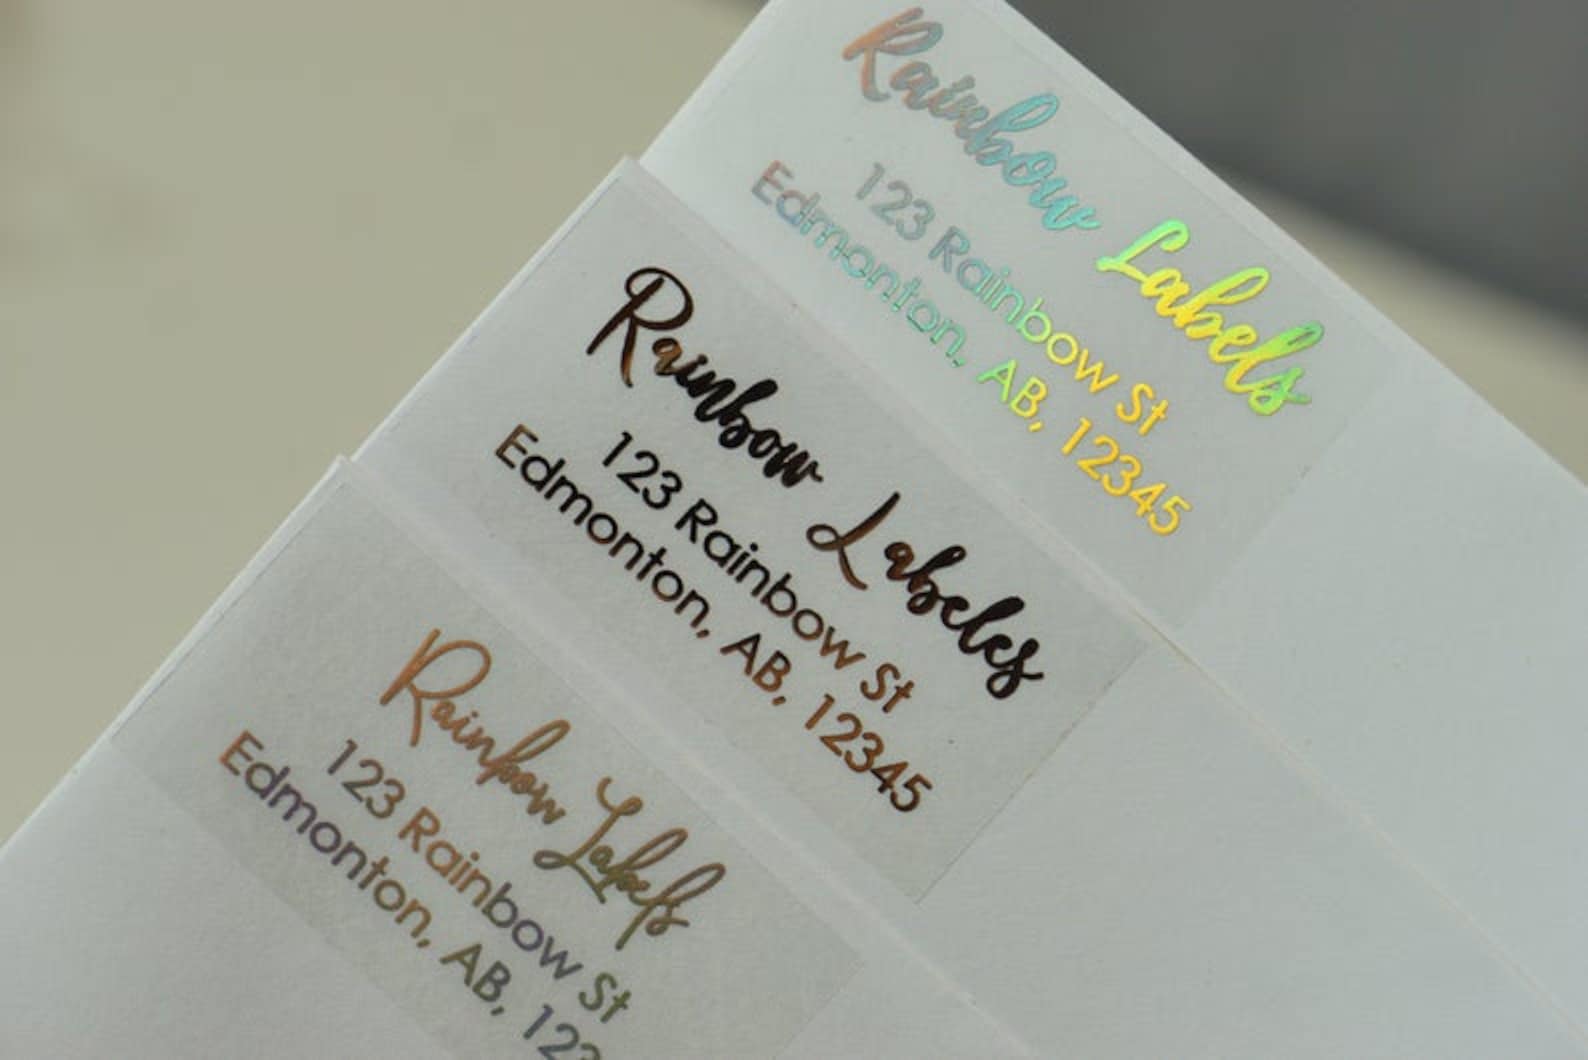 Rainbow Labels
123 Rainbow St
Edmonton, AB, 12345
Rainbow Labeles
123 Rainbow St
Edmonton, AB, 12345
Rainbow Labels
123 Rainbow St
Edmonton, AB, 123